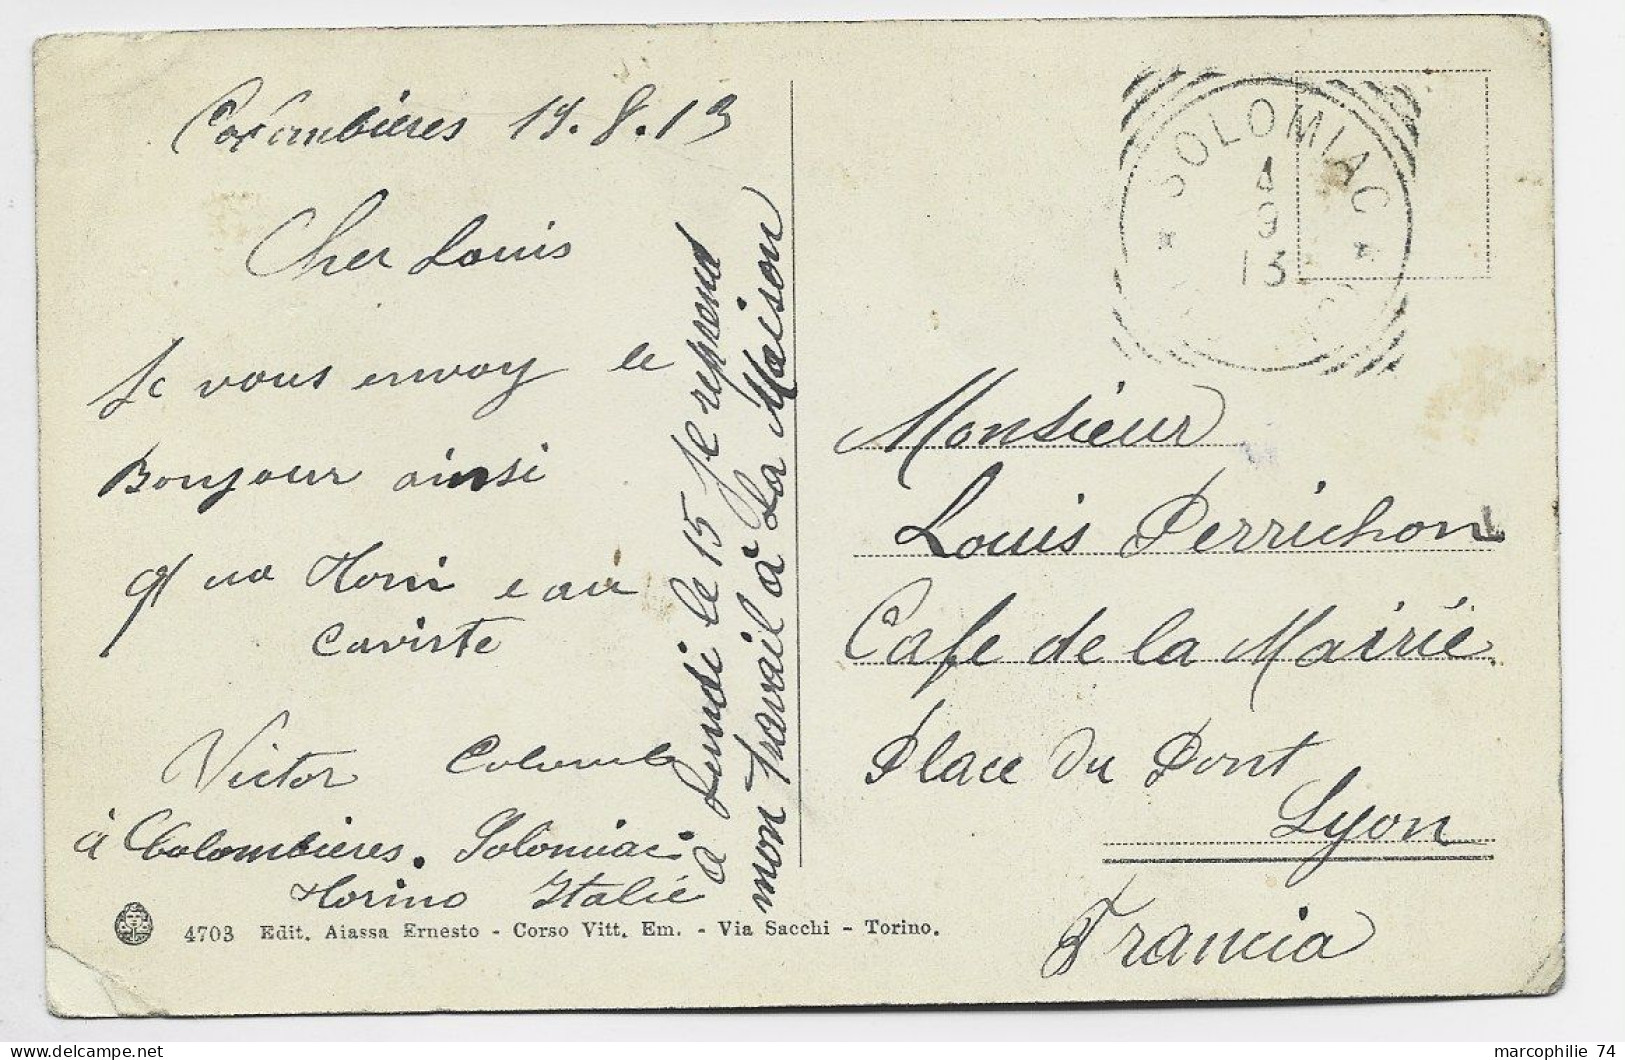 Colombières 19.8.13
Cher Louis
Je vous envoy le
Bonjour ainsi
qua Noni e au
caviste
Victor Colomb
à Colombières. Solomiac
Torino Italie
a Lundi le 15 Je reprend
mon Travail à La Maison
4703 Edit. Aiassa Ernesto - Corso Vitt. Em. - Via Sacchi - Torino.
SOLOMIAC
4
9
13
Monsieur
Louis Perrichon
Cafe de la Mairie
Place Du Pont
Lyon
Francia
marcophilie 74